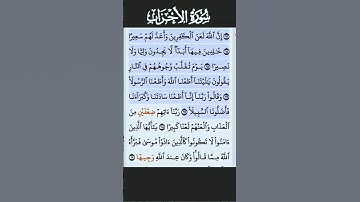 سُورَةُ الأَحْزَابِ
۞ إِنَّ ٱللَّهَ لَعَنَ ٱلْكَٰفِرِينَ وَأَعَدَّ لَهُمْ سَعِيرًا
۞ خَٰلِدِينَ فِيهَآ أَبَدًا ۖ لَّا يَجِدُونَ وَلِيًّا وَلَا
نَصِيرًا ۞ يَوْمَ تُقَلَّبُ وُجُوهُهُمْ فِى ٱلنَّارِ
يَقُولُونَ يَٰلَيْتَنَآ أَطَعْنَا ٱللَّهَ وَأَطَعْنَا ٱلرَّسُولَا۠
۞ وَقَالُوا۟ رَبَّنَآ إِنَّآ أَطَعْنَا سَادَتَنَا وَكُبَرَآءَنَا
فَأَضَلُّونَا ٱلسَّبِيلَا۠ ۞ رَبَّنَآ ءَاتِهِمْ ضِعْفَيْنِ مِنَ
ٱلْعَذَابِ وَٱلْعَنْهُمْ لَعْنًا كَبِيرًا ۞ يَٰٓأَيُّهَا ٱلَّذِينَ
ءَامَنُوا۟ لَا تَكُونُوا۟ كَٱلَّذِينَ ءَاذَوْا۟ مُوسَىٰ فَبَرَّأَهُ
ٱللَّهُ مِمَّا قَالُوا۟ ۚ وَكَانَ عِندَ ٱللَّهِ وَجِيهًا ۞